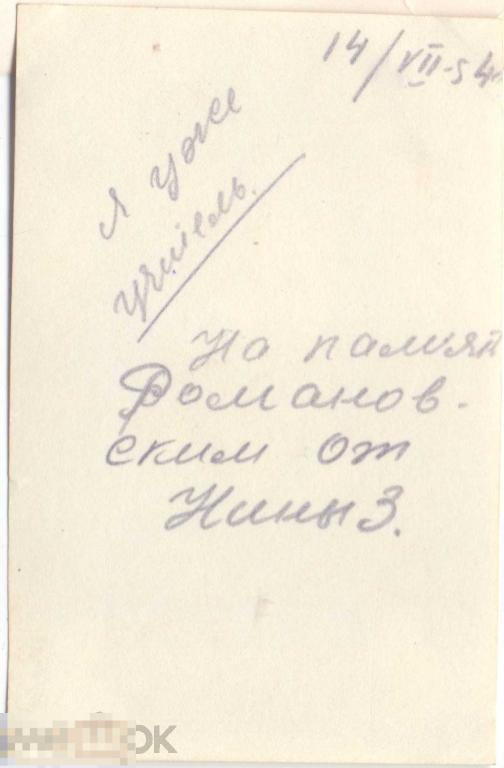 14/VII-54
Я уже
учитель.
На память
Романов-
ским от
Нины З.